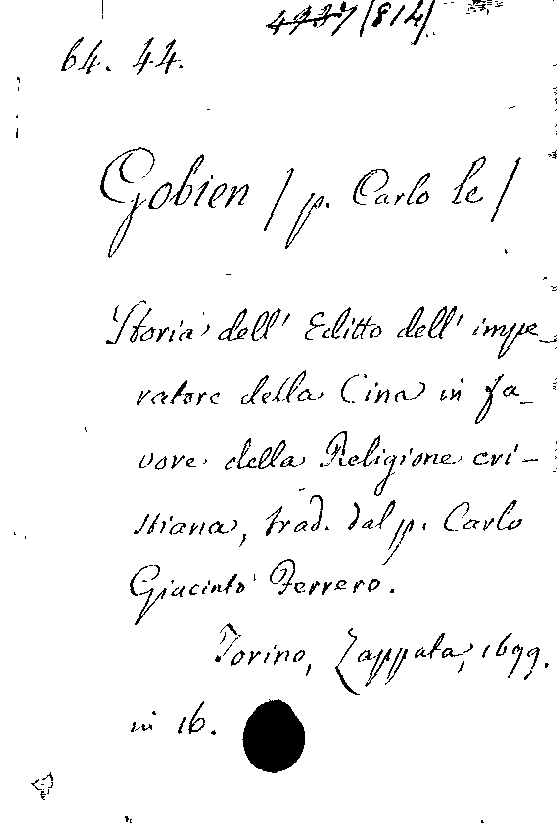 4737 (814)
64. 44.
Gobien / p. Carlo le /
Storia dell' Editto dell' impe-
ratore della Cina in fa-
vore della Religione cri-
stiana, trad. dal p. Carlo
Giacinto Ferrero.
Torino, Zappata, 1699.
in 16.